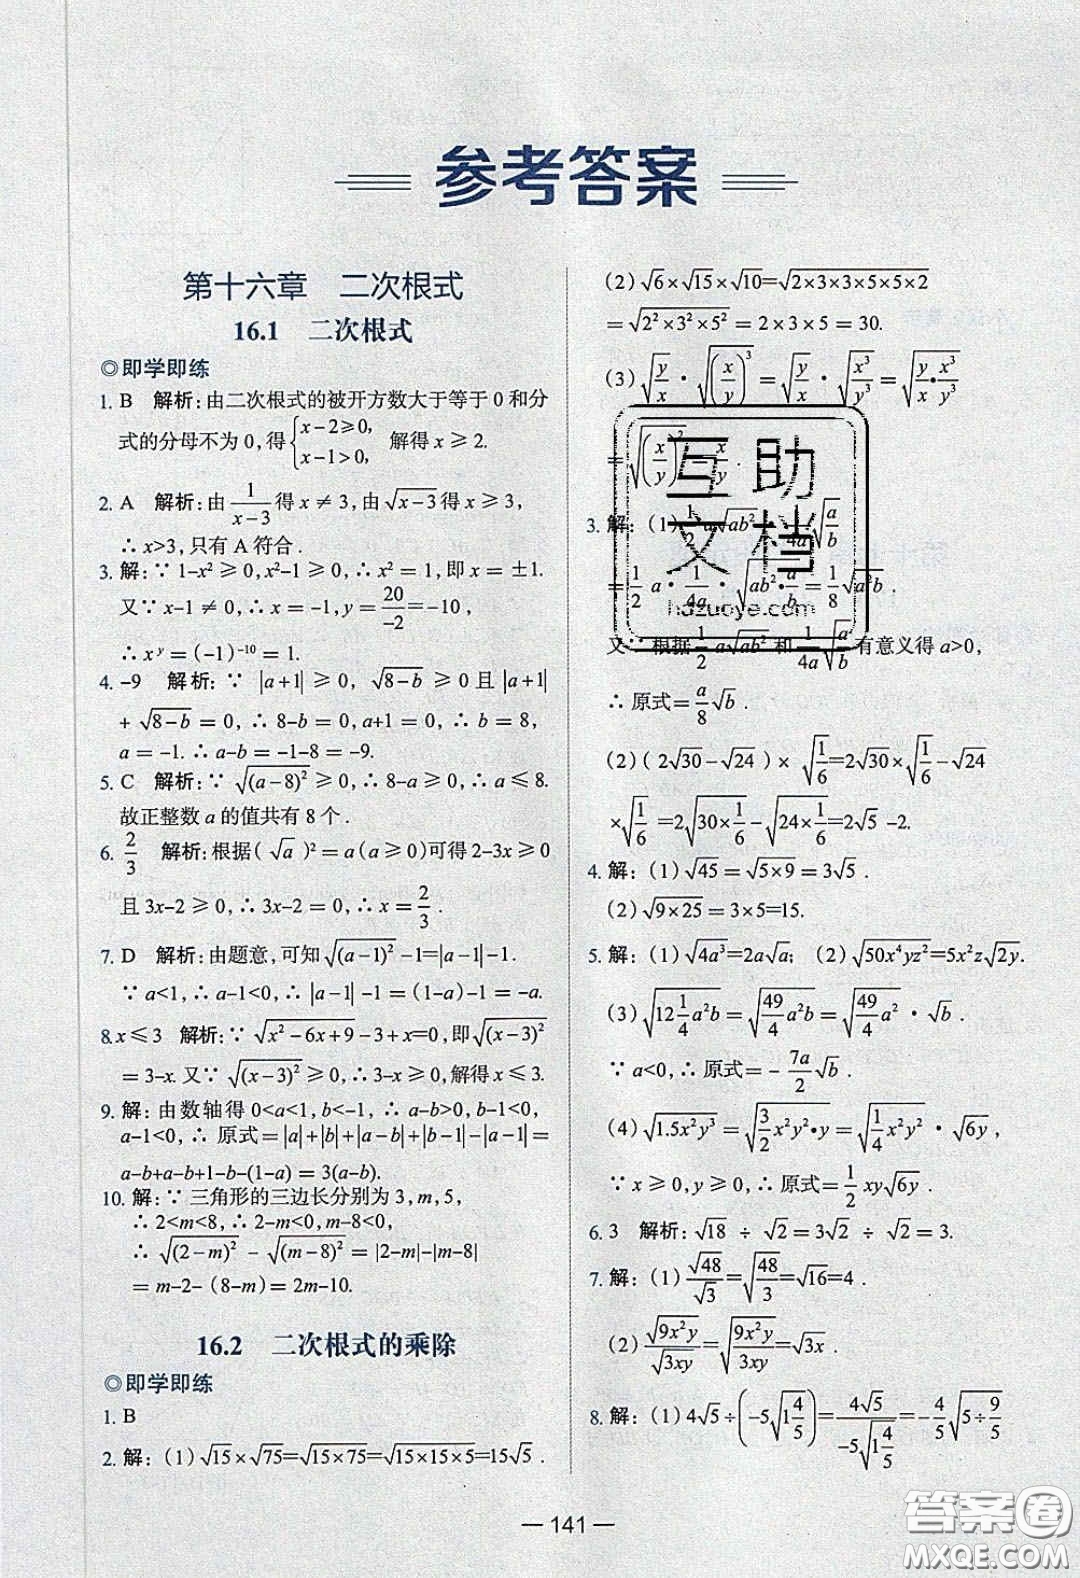 参考答案
第十六章 二次根式
16.1 二次根式
◎即学即练
1. B 解析:由二次根式的被开方数大于等于0和分
式的分母不为0,得{x-2≥0, x-1>0, 解得x≥2.
2. A 解析:由1/(x-3)得x≠3,由√(x-3)得x≥3,
∴x>3,只有A符合.
3. 解:∵1-x²≥0,x²-1≥0,∴x²=1,即x=±1.
又∵x-1≠0,∴x=-1,y=20/-2=-10,
∴x^y=(-1)^-10=1.
4. -9 解析:∵|a+1|≥0,√(8-b)≥0且|a+1|
+√(8-b)=0,∴8-b=0,a+1=0,∴b=8,
a=-1.∴a-b=-1-8=-9.
5. C 解析:∵√((a-8)²)≥0,∴8-a≥0,∴a≤8.
故正整数a的值共有8个.
6. 2/3 解析:根据(√a)²=a(a≥0)可得2-3x≥0
且3x-2≥0,∴3x-2=0,∴x=2/3.
7. D 解析:由题意,可知√((a-1)²)-1=|a-1|-1.
∵a<1,∴a-1<0,∴|a-1|-1=(1-a)-1=-a.
8. x≤3 解析:∵√(x²-6x+9)-3+x=0,即√((x-3)²)
=3-x.又∵√((x-3)²)≥0,∴3-x≥0,解得x≤3.
9. 解:由数轴得0<a<1,b<-1,∴a-b>0,b-1<0,
a-1<0,∴原式=|a|+|b|+|a-b|+|b-1|-|a-1|=
a-b+a-b+1-b-(1-a)=3(a-b).
10. 解:∵三角形的三边长分别为3,m,5,
∴2<m<8,∴2-m<0,m-8<0,
∴√((2-m)²)-√((m-8)²)=|2-m|-|m-8|
=m-2-(8-m)=2m-10.
16.2 二次根式的乘除
◎即学即练
1. B
2. 解:(1)√15×√75=√(15×75)=√(15×15×5)=15√5.
(2)√6×√15×√10=√(2×3×3×5×5×2)
=√(2²×3²×5²)=2×3×5=30.
(3)√(y/x)·√((x/y)³)=√(y/x)·√(x³/y³)=√(y/x·x³/y³)
=√((x/y)²)=x/y.
3. 解:(1)1/2 a√(ab²)·1/4a √(a/b)
=1/2 a·1/4a·√(ab²·a/b)=1/8√(a²b).
又∵根据1/2 a√(ab²)和1/4a √(a/b)有意义得a>0,
∴原式=a/8√b.
(2)(2√30-√24)×√(1/6)=2√30×√(1/6)-√24
×√(1/6)=2√(30×1/6)-√(24×1/6)=2√5-2.
4. 解:(1)√45=√(5×9)=3√5.
(2)√(9×25)=3×5=15.
5. 解:(1)√(4a³)=2a√a;(2)√(50x⁴yz²)=5x²z√(2y).
(3)√(12 1/4 a²b)=√(49/4 a²b)=√(49/4 a²)·√b.
∵a<0,∴原式=-7a/2√b.
(4)√(1.5x²y³)=√(3/2 x²y²·y)=√(1/4 x²y²)·√(6y),
∵x≥0,y≥0,∴原式=1/2 xy√(6y).
6. 3 解析:√18÷√2=3√2÷√2=3.
7. 解:(1)√48/√3=√(48/3)=√16=4.
(2)√(9x²y)/√(3xy)=√(9x²y/3xy)=√(3x).
8. 解:(1)4√5÷(-5√(1 4/5))=4√5/(-5√(1 4/5))=-4/5√(5÷9/5)
— 141 —
互助
文档
hdzuoye.com
答案圈
MXQE.COM